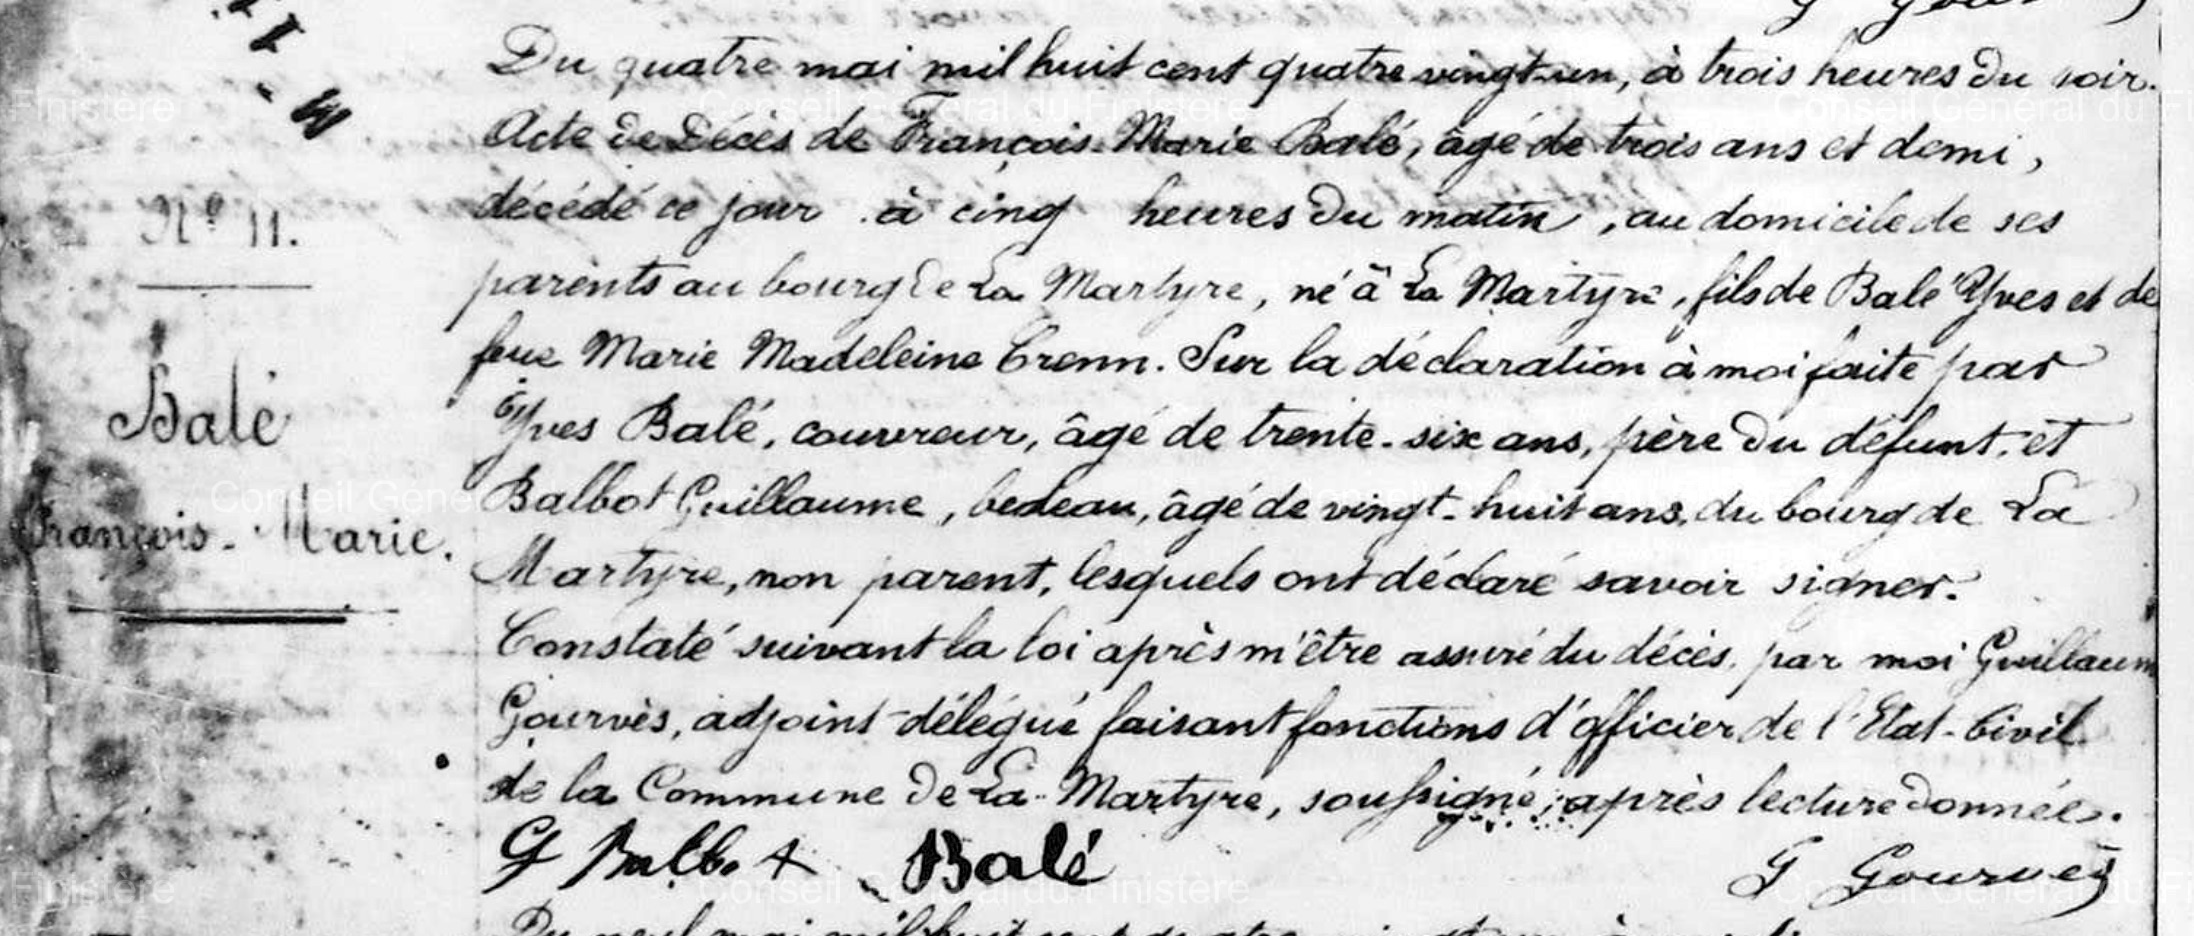 Nº 11.
Balé
François-Marie.
Du quatre mai mil huit cent quatre vingt-un, à trois heures du soir.
Acte de Décès de François-Marie Balé, âgé de trois ans et demi,
décédé ce jour à cinq heures du matin, au domicile de ses
parents au bourg de La Martyre, né à La Martyre, fils de Balé Yves et de
feue Marie Madeleine Crenn. Sur la déclaration à moi faite par
Yves Balé, couvreur, âgé de trente-six ans, père du défunt, et
Balbot Guillaume, bedeau, âgé de vingt-huit ans, du bourg de La
Martyre, non parent, lesquels ont déclaré savoir signer.
Constaté suivant la loi après m'être assuré du décès, par moi Guillaum
Gourvès, adjoint-délégué faisant fonctions d'officier de l'Etat-Civil
de la Commune de La-Martyre, soussigné, après lecture donnée.
G Balbot Balé G Gourvès
Conseil Général du Finistère